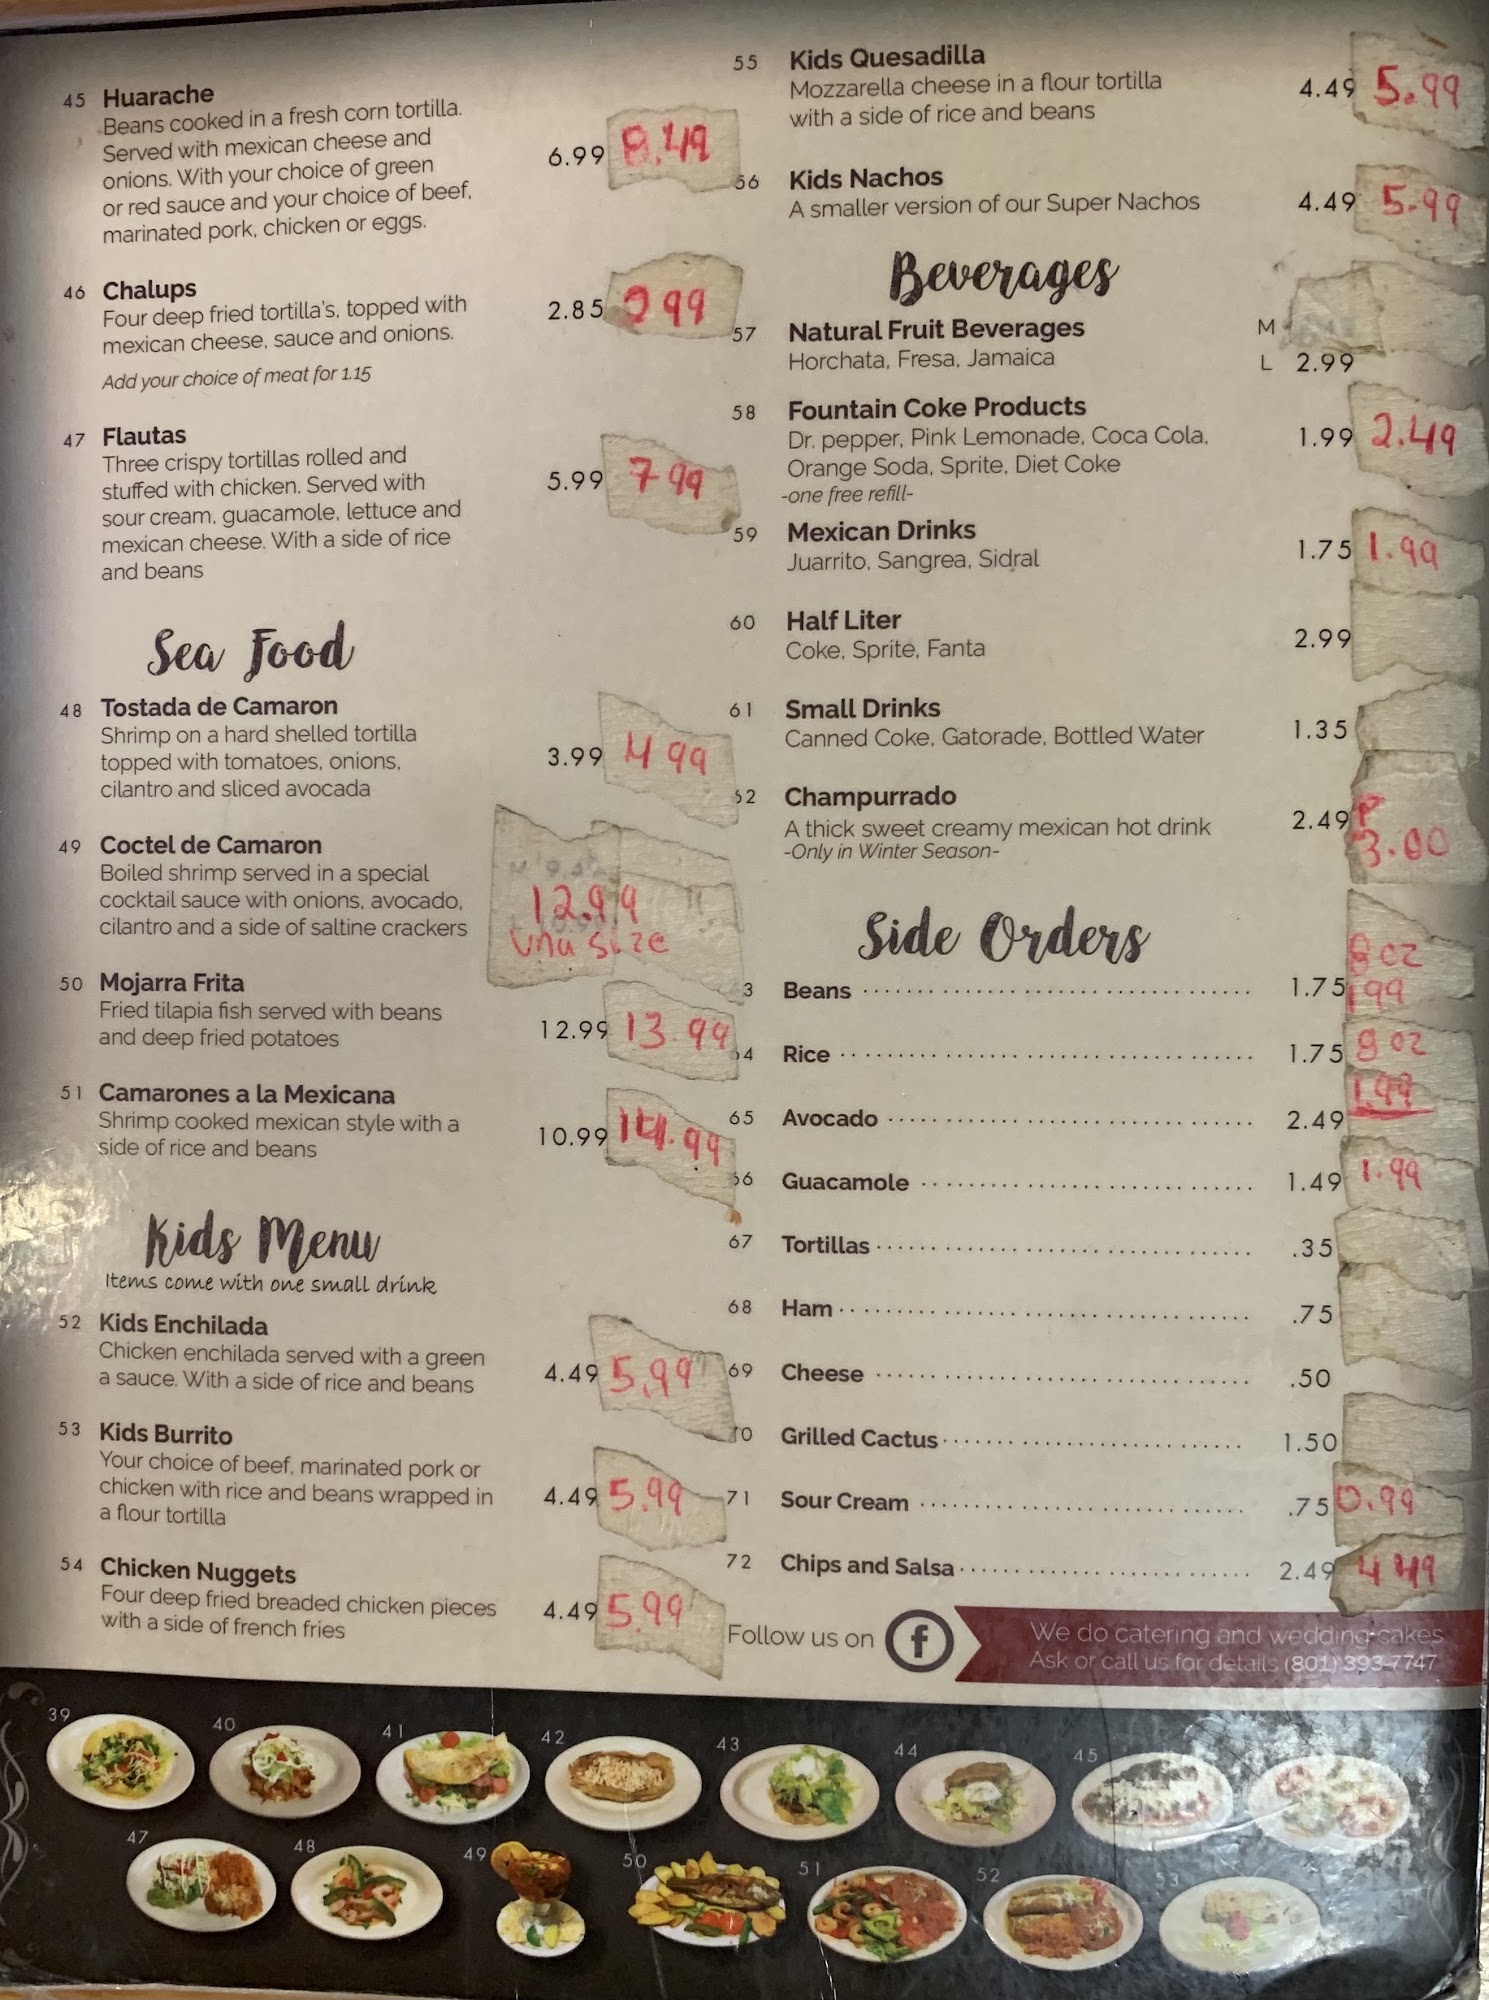 45 Huarache
Beans cooked in a fresh corn tortilla.
Served with mexican cheese and
onions. With your choice of green
or red sauce and your choice of beef,
marinated pork, chicken or eggs.
6.99 8.49
46 Chalups
Four deep fried tortilla's, topped with
mexican cheese, sauce and onions.
Add your choice of meat for 1.15
2.85 99
47 Flautas
Three crispy tortillas rolled and
stuffed with chicken. Served with
sour cream, guacamole, lettuce and
mexican cheese. With a side of rice
and beans
5.99 7 99
Sea Food
48 Tostada de Camaron
Shrimp on a hard shelled tortilla
topped with tomatoes, onions,
cilantro and sliced avocada
3.99 4 99
49 Coctel de Camaron
Boiled shrimp served in a special
cocktail sauce with onions, avocado,
cilantro and a side of saltine crackers
12.99
Una size
50 Mojarra Frita
Fried tilapia fish served with beans
and deep fried potatoes
12.99 13.99
51 Camarones a la Mexicana
Shrimp cooked mexican style with a
side of rice and beans
10.99 14.99
Kids Menu
Items come with one small drink
52 Kids Enchilada
Chicken enchilada served with a green
a sauce. With a side of rice and beans
4.49 5.99
53 Kids Burrito
Your choice of beef, marinated pork or
chicken with rice and beans wrapped in
a flour tortilla
4.49 5.99
54 Chicken Nuggets
Four deep fried breaded chicken pieces
with a side of french fries
4.49 5.99
55 Kids Quesadilla
Mozzarella cheese in a flour tortilla
with a side of rice and beans
4.49 5.99
56 Kids Nachos
A smaller version of our Super Nachos
4.49 5.99
Beverages
57 Natural Fruit Beverages
Horchata, Fresa, Jamaica
M
L 2.99
58 Fountain Coke Products
Dr. pepper, Pink Lemonade, Coca Cola,
Orange Soda, Sprite, Diet Coke
-one free refill-
1.99 2.49
59 Mexican Drinks
Juarrito, Sangrea, Sidral
1.75 1.99
60 Half Liter
Coke, Sprite, Fanta
2.99
61 Small Drinks
Canned Coke, Gatorade, Bottled Water
1.35
62 Champurrado
A thick sweet creamy mexican hot drink
-Only in Winter Season-
2.49 P
3.00
Side Orders
3 Beans 1.75 8 oz
1 99
64 Rice 1.75 8 oz
1.99
65 Avocado 2.49
66 Guacamole 1.49 1.99
67 Tortillas .35
68 Ham .75
69 Cheese .50
70 Grilled Cactus 1.50
71 Sour Cream .75 0.99
72 Chips and Salsa 2.49 4 49
Follow us on f
We do catering and wedding cakes
Ask or call us for details (801) 393-7747
39 40 41 42 43 44 45
47 48 49 50 51 52 53